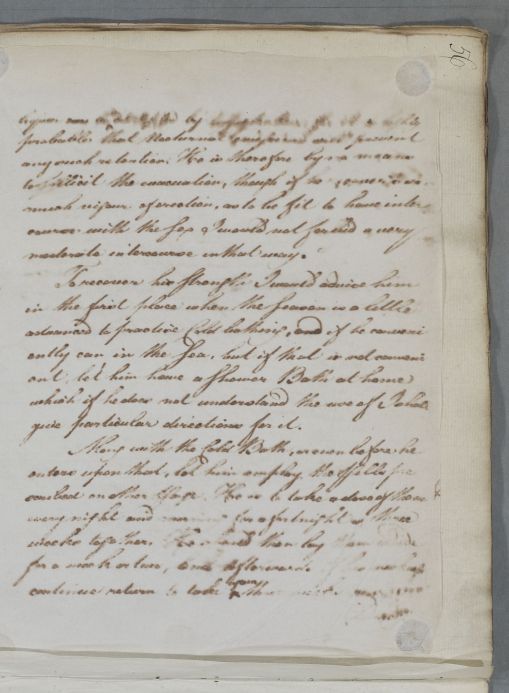 56
by
probable that Nocturnal emissions will prevent
any such retention. He is therefore by no means
to sollicit the evacuation, though if he
much vigour of erection, as to be fit to have inter
course with the Sex I would not forbid a very
moderate intercourse in that way.
To recover his strength I would advise him
in the first place when the Season is a little
advanced to practice Cold bathing, and if he conveni
ently can in the Sea, but if that is not conveni
ent, let him have a Shower Bath at home
which if he does not understand the use of I shall
give particular directions for it.
Along with the Cold Bath, or even before he
enters upon that, let him employ the Pills pre
scribed on other Page. He is to take a dose of them
every night and morning for a fortnight or three
weeks together. He should then lay them aside
for a week or two, and afterwards
continue return to take them